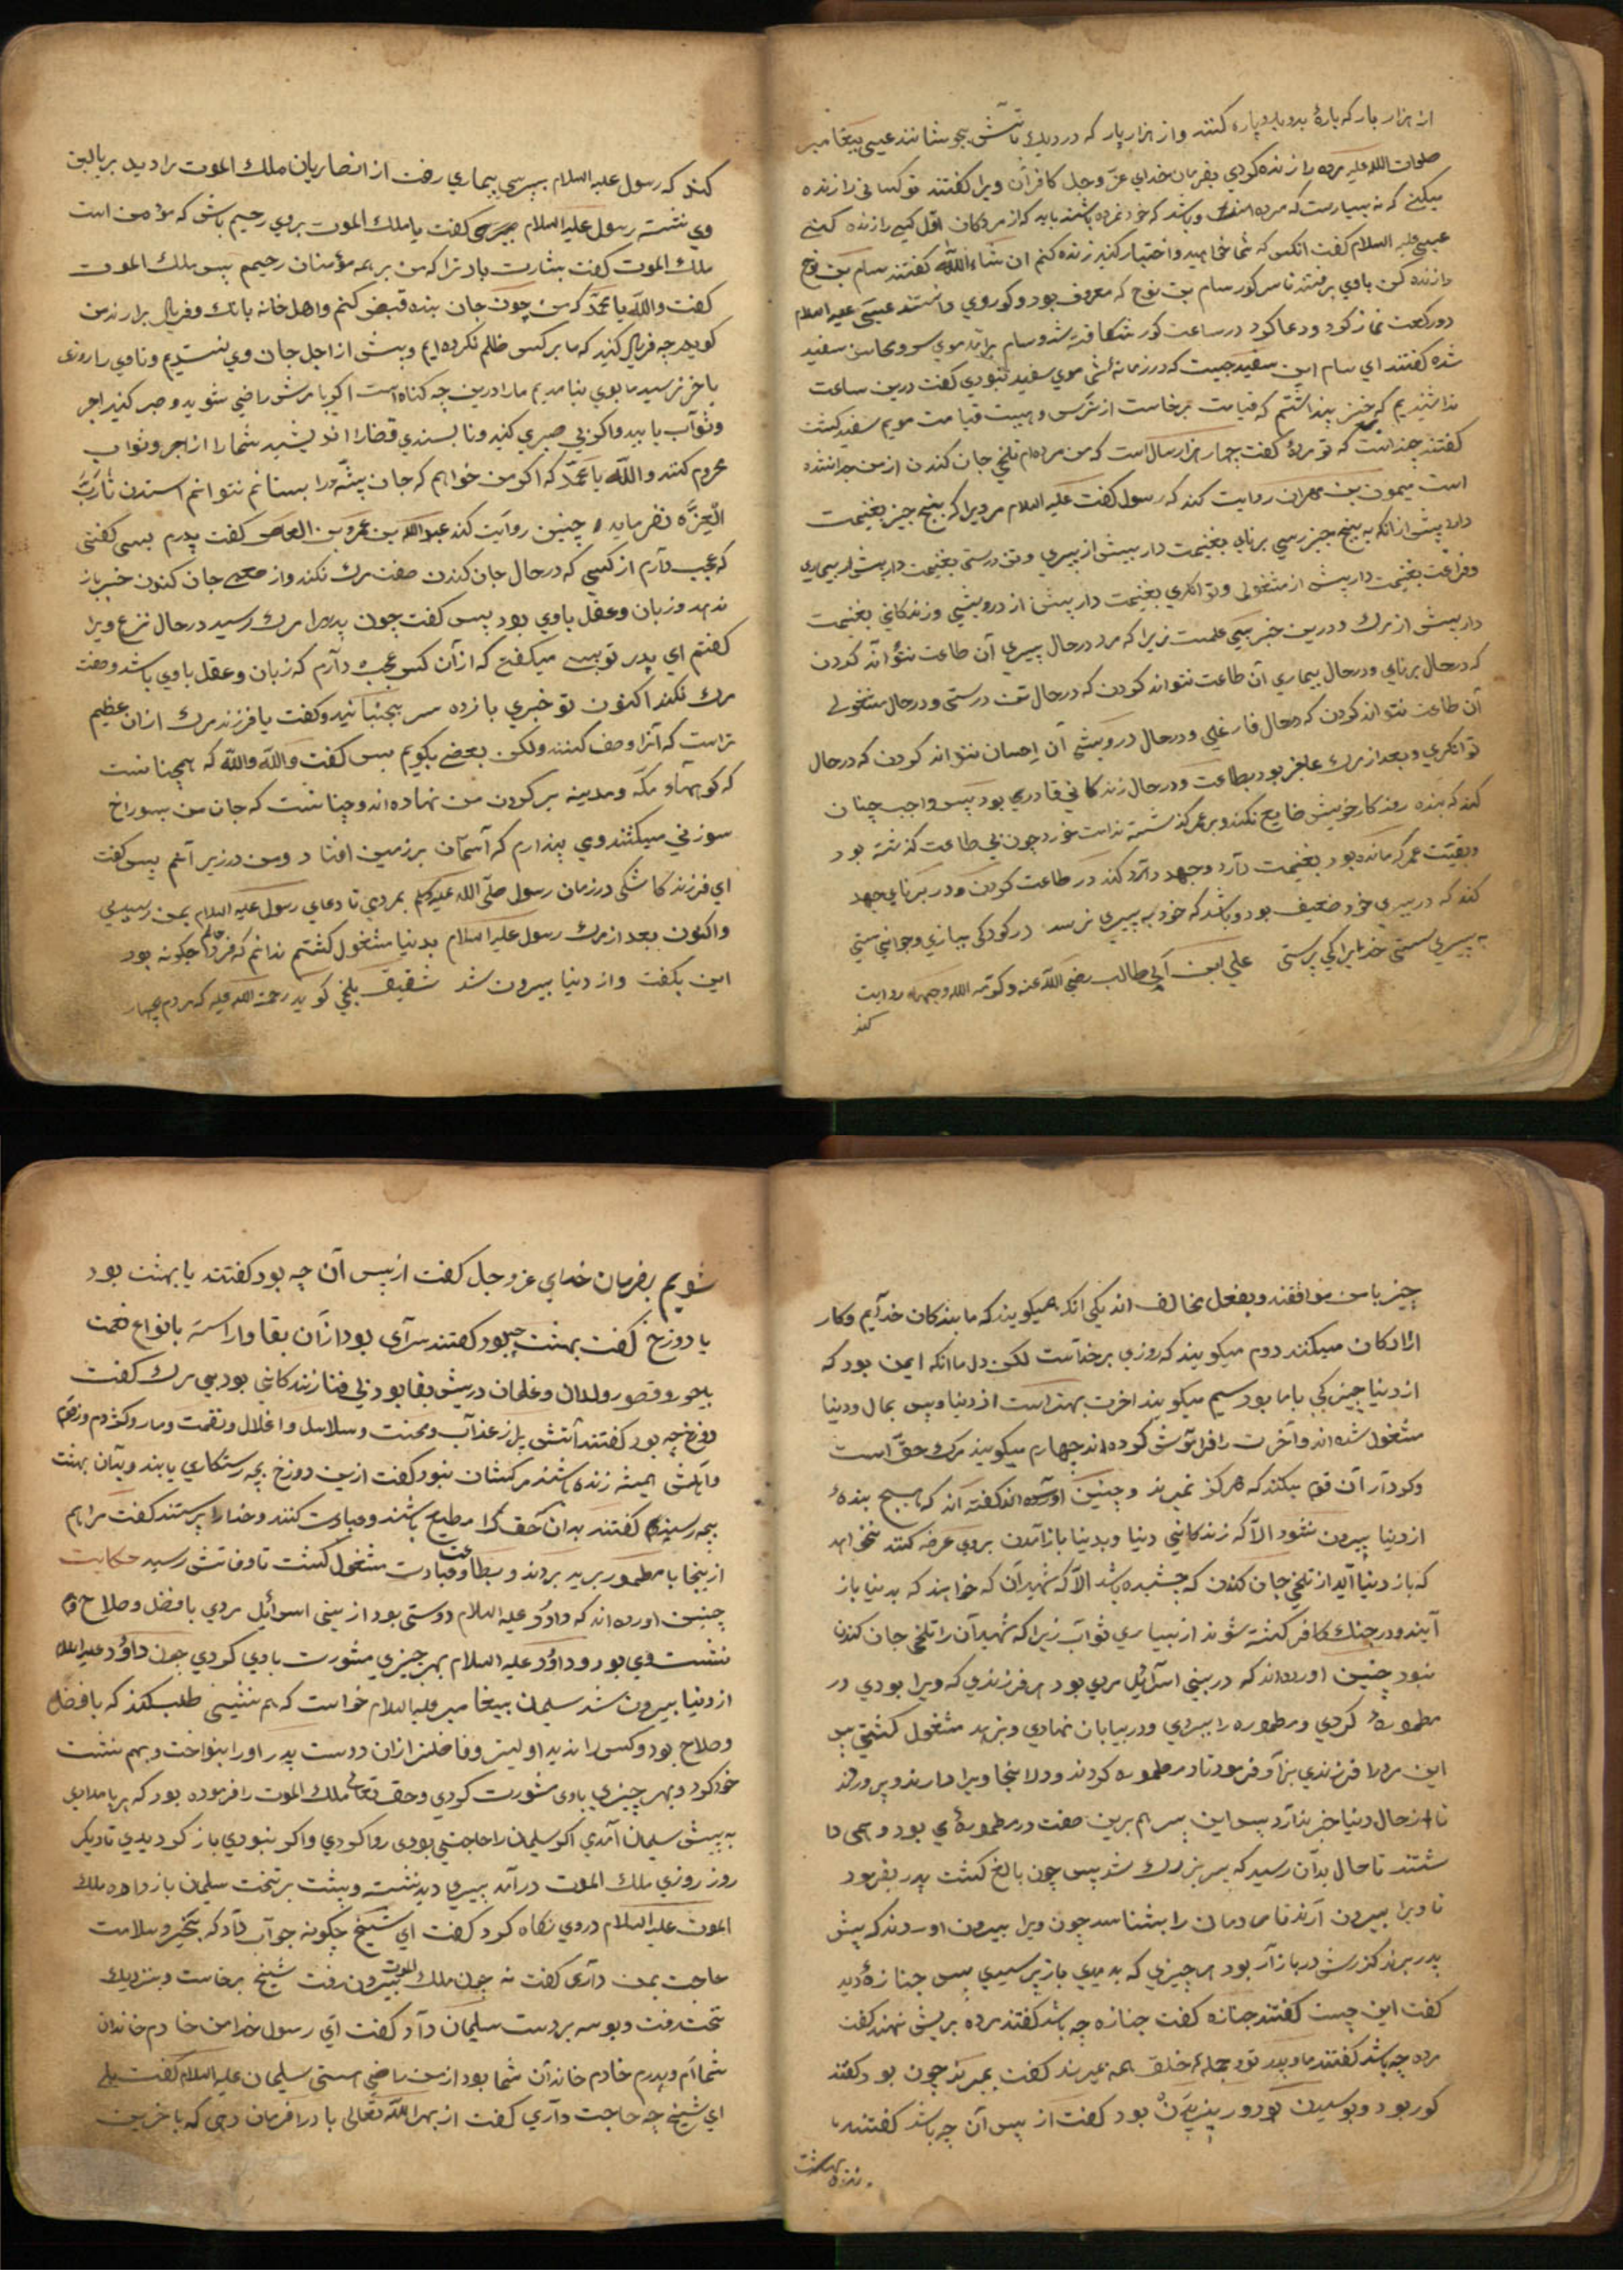 از هزار بار که پارهٔ بدو پاره کنند و از هزار بار که در دیك بآتش بجوشانند عیسی پیغامبر
صلوات الله علیه مرده را زنده کردي بفرمان خداي عزّ وجل کافران ویرا کفتند تو کسانی را زنده
میکنی که نه بسیارست که مرده‌اند و باشد که خود نمرده باشند باید که از مردکان اوّل کسی را زنده کنی
عیسی علیه السلام کفت انکس که شما خواهید و اختیار کنید زنده کنم ان شاء اللّٰه کفتند سام بن نوح
را زنده کن باوي برفتند تا سر کور سام بن نوح که معروف بود و کور وي دانستند عیسی علیه السلام
دو رکعت نماز کرد و دعا کرد در ساعت کور شکافته شد و سام برآمد موي سر و محاسن سفید
شده کفتند اي سام این سفید چیست که در زمانه شما موي سفید نبودي کفت درین ساعت
ندا شنیدم که خیز پنداشتم که قیامت برخاست از ترس و هیبت قیامت مویم سفید کشت
کفتند چندست که تو مردهٔ کفت چهار هزار سال است که من مرده‌ام تلخی جان کندن از من جدا نشده
است میمون بن مهران روایت کند که رسول کفت علیه السلام مردیرا که پنج چیز بغنیمت
دار پیش از انکه به پنج چیز رسي برنایي بغنیمت دار پیش از پیري و تن درستی بغنیمت دار پیش از بیماري
و فراغت بغنیمت دار پیش از مشغولی و توانکري بغنیمت دار پیش از درویشی و زندکانی بغنیمت
دار پیش از مرك و درین خبر بسی علمست زیرا که مرد در حال پیري آن طاعت نتواند کردن
که در حال برنایي و در حال بیماري آن طاعت نتواند کردن که در حال تن درستی و در حال مشغولی
آن طاعت نتواند کردن که در حال فارغی و در حال درویشی آن احسان نتواند کردن که در حال
توانکري و بعد از مرك عاجز بود بطاعت و در حال زندکانی قادري بود پس واجب چنان
کند که بنده روزکار خویش ضایع نکند و بر عمر کذشته ندامت خورد چون بی طاعت کذشته بود
و بقیّت عمر که مانده بود بغنیمت دارد و جهد دارد کند در طاعت کردن و در برنایي جهد
کند که در پیري خود ضعیف بود و باشد که خود به پیري نرسد در کودکی ببازي و جوانی سستی
به پیري سستی خدایرا کی پرستی علی ابن ابي طالب رضي اللّٰه عنه و کرّم اللّٰه وجهه روایت
کند
کند که رسول علیه السلام بپرسي بیماري رفت از انصاریان ملك الموت را دید بر بالین
وي نشسته رسول علیه السلام کفت یا ملك الموت بروي رحیم باش که مؤمن است
ملك الموت کفت بشارت باد ترا که من بر همه مؤمنان رحیمم پس ملك الموت
کفت واللّٰه یا محمّد که من چون جان بنده قبض کنم و اهل خانه بانك و فریاد برارند من
کویم چه فریاد کنید که ما بر کس ظلم نکرده‌ایم و پیش از اجل جان وي نستدیم و تا وي را روزی
باخر نرسید ما بوي نیامدیم ما را درین چه کناه است اکر بامرش راضی شوید و صبر کنید اجر
و ثواب یابید و اکر بی صبري کنید و ناپسندي قضا را اندیشید شما را از اجر و ثواب
محروم کنند واللّٰه یا محمّد که اکر من خواهم که جان پشّه را بستانم نتوانم استدن تا ربّ
العزّه نفرماید چنین روایت کند عبد اللّٰه بن عمرو بن العاص کفت پدرم بسی کفتی
که عجب دارم از کسی که در حال جان کندن صفت مرك نکند و از جان کندن خبر باز
ندهد و زبان و عقل باوي بود پس کفت چون پدرم را مرك رسید در حال نزع ویرا
کفتم اي پدر تو بسی میکفتی که از آن کس عجب دارم که زبان و عقل باوي باشد و صفت
مرك نکند اکنون تو خبري باز ده سر بجنبانید و کفت یا فرزند مرك از آن عظیم
تر است که آنرا وصف کنند ولکن بعضی بکویم پس کفت واللّٰه واللّٰه که همچنانست
که کوههاء مکّه و مدینه بر کردن من نهاده‌اند و چنانست که جان من بسوراخ
سوزنی میکشند و می پندارم که آسمان بر زمین افتاد و من در زیر آنم پس کفت
اي فرزند کاشکی در زمان رسول صلّی اللّٰه علیه وسلم بمردي تا دعاي رسول علیه السلام بمن رسیدي
و اکنون بعد از مرك رسول علیه السلام بدنیا مشغول کشتم ندانم که فردا حالم چکونه بود
این بکفت و از دنیا بیرون شد شقیق بلخی کوید رحمة اللّٰه علیه که مردم بچهار
چیز با من موافقند و بفعل مخالف اند یکی انکه همیکویند که ما بندکان خدایم و کار
ازادکان میکنند دوم میکویند که روزي بر خدآست لکن دل ما انکه ایمن بود که
از دنیا چیزکی باما بود سیم میکویند اخرت بهتر است از دنیا و پس بمال و دنیا
مشغول شده‌اند و آخرت را فراموش کرده‌اند چهارم میکویند مرك و حق است
و کردار آن قوم میکنند که هرکز نمیرند و چنین آورده‌اند کفته اند که هیچ بندهٔ
از دنیا بیرون نشود الّا که زندکانی دنیا و بدنیا باز آمدن بروي عرضه کنند نخواهد
که باز دنیا آید از تلخی جان کندن که چشیده باشد الّا که شهیدان که خواهند که بدنیا باز
آیند و در جنك کافر کشته شوند از بسیاري ثواب زیرا که شهیدان را تلخی جان کندن
نبود چنین اورده‌اند که در بنی اسرائیل مردي بود هر فرزندي که ویرا بودي در
مطمورهٔ کردي و مطموره را ببردي و در بیابان نهادي و بزهد مشغول کشتی پس
این مرد را فرزندي بزاد و فرمود تا در مطموره کردند و در انجا ویرا دارند و پرورند
تا از حال دنیا خبر ندارد پس این پسر هم برین صفت در مطمورهٔ ي بود و همی دا
شتند تا حال بدان رسید که پسر بزرك شد پس چون بالغ کشت پدر بفرمود
تا ویرا بیرون آرند تا مردمان را بشناسد چون ویرا بیرون اوردند که پیش
پدر برند کذرش در بازار بود هر چیزي که بدیدي باز پرسیدي پس جنازهٔ دید
کفت این چیست کفتند جنازه کفت جنازه چه باشد کفتند مرده بریش نهند کفت
مرده چه باشد کفتند ما و پدر تو و جملهٔ خلق همه بمیرند کفت بمیرند چون بود کفتند
کور بود و پوسیدن بود و ریزیدن بود کفت از پس آن چه باشد کفتند
زنده
شویم بفرمان خداي عز وجل کفت از پس آن چه بود کفتند یا بهشت بود
یا دوزخ کفت بهشت چه بود کفتند سراي بود از آن بقا و اراسته بانواع نعمت
بحور و قصور و ولدان و غلمان دریش بقا بود بی فنا زندکانی بود بی مرك کفت
دوزخ چه بود کفتند آتش پر از عذاب و محنت و سلاسل و اغلال و نقمت و مار و کژدم و زقوم
و آتش همیشه زنده باشند مرکشان نبود کفت ازین دوزخ بچه رستکاري یابند و بدان بهشت
بچه رسند کفتند بدان که حق را مطیع باشند و عبادت کنند و خدا را پرستند کفت مرا هم
ازینجا با مطموره برید بردند و بطاعت و عبادت مشغول کشت تا وفاتش رسید حکایت
چنین اورده‌اند که داود علیه السلام دوستی بود از بنی اسرائیل مردي با فضل و صلاح و هم
نشست وي بود و داود علیه السلام بهر چیزي مشورت باوي کردي چون داود علیه السلام
از دنیا بیرون شد سلیمان پیغامبر علیه السلام خواست که هم نشینی طلب کند که با فضل
و صلاح بود و کس را ندید اولیتر و فاضلتر از ان دوست پدر او را بنواخت و هم نشست
خود کرد و بهر چیزي باوی مشورت کردي و حق تعالی ملك الموت را فرموده بود که هر بامدادي
به پیش سلیمان آمدي اکر سلیمان را حاجتی بودی روا کردي و اکر نبودي باز کردیدي تا دیکر
روز روزي ملك الموت درآمد پیري دید نشسته و پشت بر تخت سلیمان باز داده ملك
الموت علیه السلام در وي نکاه کرد کفت اي شیخ چکونه جواب داد که بخیر و سلامت
حاجت بمن داري کفت نه چون ملك الموت بیرون رفت شیخ برخاست و بنزدیك
تخت رفت و بوسه بر دست سلیمان داد کفت اي رسول خدا من خادم خاندان
شما ام و پدرم خادم خاندان شما بود از من راضی هستی سلیمان علیه السلام کفت بلی
اي شیخ چه حاجت داري کفت از بهر اللّٰه تعالی باد را فرمان دهی که باخرین